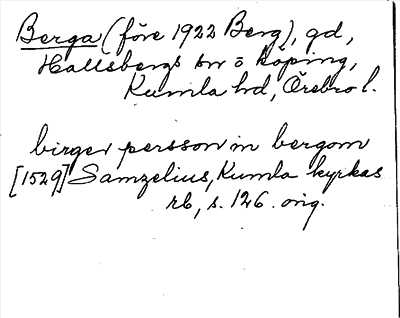 Berga (före 1922 Berg), gd,
Hallsbergs sn o köping,
Kumla hd, Örebro l.
birger persson in bergom
[1529] Samzelius, Kumla kyrkas
rb, s. 126. orig.